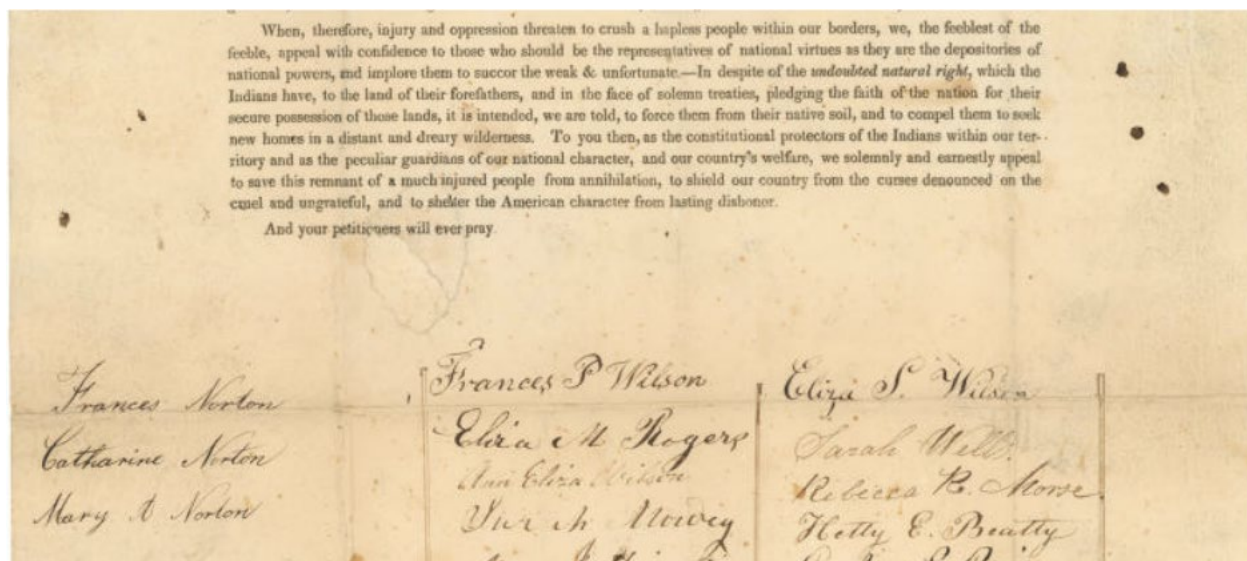 When, therefore, injury and oppression threaten to crush a hapless people within our borders, we, the feeblest of the
feeble, appeal with confidence to those who should be the representatives of national virtues as they are the depositories of
national powers, and implore them to succor the weak & unfortunate.—In despite of the undoubted natural right, which the
Indians have, to the land of their forefathers, and in the face of solemn treaties, pledging the faith of the nation for their
secure possession of those lands, it is intended, we are told, to force them from their native soil, and to compel them to seek
new homes in a distant and dreary wilderness. To you then, as the constitutional protectors of the Indians within our ter-
ritory and as the peculiar guardians of our national character, and our country's welfare, we solemnly and earnestly appeal
to save this remnant of a much injured people from annihilation, to shield our country from the curses denounced on the
cruel and ungrateful, and to shelter the American character from lasting dishonor.
And your petitioners will ever pray
Frances Norton
Catharine Norton
Mary A Norton
Frances P Wilson
Eliza M Rogers
Ann Eliza Wilson
Eliza S. Wilson
Sarah Wells
Rebecca R. Morse.
Hetty E. Beatty